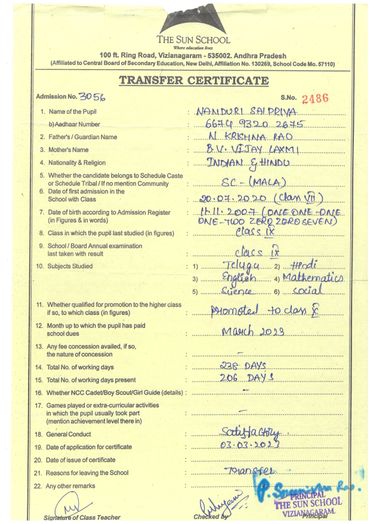 THE SUN SCHOOL
Where education lives
100 ft. Ring Road, Vizianagaram - 535002. Andhra Pradesh
(Affiliated to Central Board of Secondary Education, New Delhi, Affiliation No. 130269, School Code No. 57110)
TRANSFER CERTIFICATE
Admission No. 3056 S.No. 2486
1. Name of the Pupil : NANDURI SAI PRIYA
b) Aadhaar Number : 6674 9320 2675
2. Father's / Guardian Name : N. KRISHNA RAO
3. Mother's Name : B.V. VIJAY LAXMI
4. Nationality & Religion : INDIAN & HINDU
5. Whether the candidate belongs to Schedule Caste
or Schedule Tribal / If no mention Community : SC - (MALA)
6. Date of first admission in the
School with Class : 20.07.2020 (Class VII)
7. Date of birth according to Admission Register
(in Figures & in words) : 11.11.2007 (ONE ONE-ONE
ONE-TWO ZERO ZERO SEVEN)
8. Class in which the pupil last studied (in figures) : Class IX
9. School / Board Annual examination
last taken with result : class IX
10. Subjects Studied : 1) Telugu 2) Hindi
3) English 4) Mathematics
5) Science 6) Social
11. Whether qualified for promotion to the higher class
if so, to which class (in figures) : promoted to class X
12. Month up to which the pupil has paid
school dues : March 2023
13. Any fee concession availed, if so,
the nature of concession : -
14. Total No. of working days : 238 DAYS
15. Total No. of working days present : 206 DAYS
16. Whether NCC Cadet/Boy Scout/Girl Guide (details) : -
17. Games played or extra-curricular activities
in which the pupil usually took part
(mention achievement level there in) : -
18. General Conduct : Satisfactory
19. Date of application for certificate : 03-03-2023
20. Date of issue of certificate : -
21. Reasons for leaving the School : Transfer
22. Any other remarks : -
PRINCIPAL
THE SUN SCHOOL
VIZIANAGARAM.
Signature of Class Teacher Checked by Principal